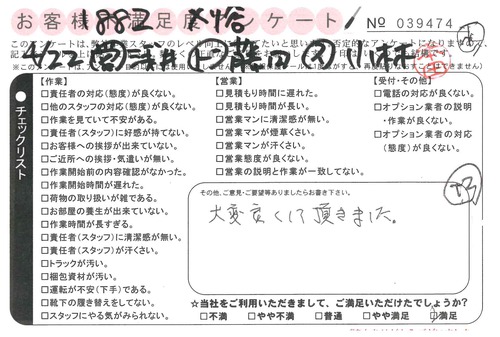 お客様満足アンケート
No 039474
チェックリスト
【作業】
□責任者の対応(態度)が良くない。
□他のスタッフの対応(態度)が良くない。
□作業を見ていて不安がある。
□責任者(スタッフ)に好感が持てない。
□お客様への挨拶が出来ていない。
□ご近所への挨拶・気遣いが無い。
□作業開始前の内容確認がなかった。
□作業開始時間が遅れた。
□荷物の取り扱いが雑である。
□お部屋の養生が出来ていない。
□作業時間が長すぎる。
□責任者(スタッフ)に清潔感が無い。
□責任者(スタッフ)が汗くさい。
□トラックが汚い。
□梱包資材が汚い。
□運転が不安(下手)である。
□靴下の履き替えをしてない。
□スタッフにやる気がみられない。
【営業】
□見積もり時間に遅れた。
□見積もり時間が長い。
□営業マンに清潔感が無い。
□営業マンが煙草くさい。
□営業マンが汗くさい。
□営業態度が良くない。
□営業の説明と作業が一致してない。
【受付・その他】
□電話の対応が良くない。
□オプション業者の説明
・作業が良くない。
□オプション業者の対応
(態度)が良くない。
その他、ご意見・ご要望等ありましたらお書き下さい。
大変良くして頂きました。
☆当社をご利用いただきまして、ご満足いただけたでしょうか?
□不満 □やや不満 □普通 □やや満足 □満足